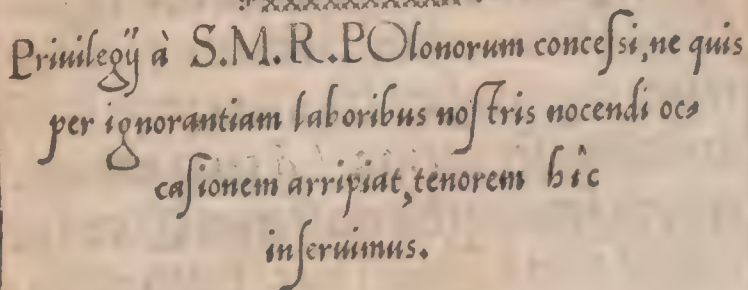 Priuilegij à S.M.R.POlonorum conceſsi,ne quis
per ignorantiam laboribus noſtris nocendi oc⸗
caſionem arripiat,tenorem hîc
inſeruimus.